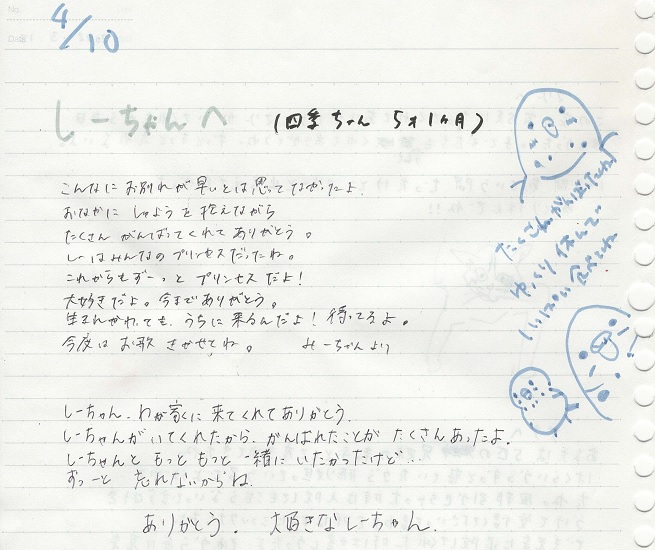 4/10
しーちゃんへ
(四季ちゃん 5才1ヶ月)
こんなにお別れが早いとは思ってなかったよ
おなかに しゅようを抱えながら
たくさん がんばってくれて ありがとう。
しーはみんなのプリンセスだったね。
これからもずーっと プリンセスだよ!
大好きだよ。今まで ありがとう。
生まれかわっても、うちに来るんだよ! 待ってるよ。
今度は お歌 きかせてね。 みーちゃんより
たくさんがんばったね
ゆっくり休んで
いっぱい食べてね
しーちゃん、わが家に来てくれてありがとう。
しーちゃんがいてくれたから、がんばれたことが たくさんあったよ。
しーちゃんと もっと もっと 一緒に いたかったけど…
ずっーと 忘れないからね
ありがとう. 大好きなしーちゃん.